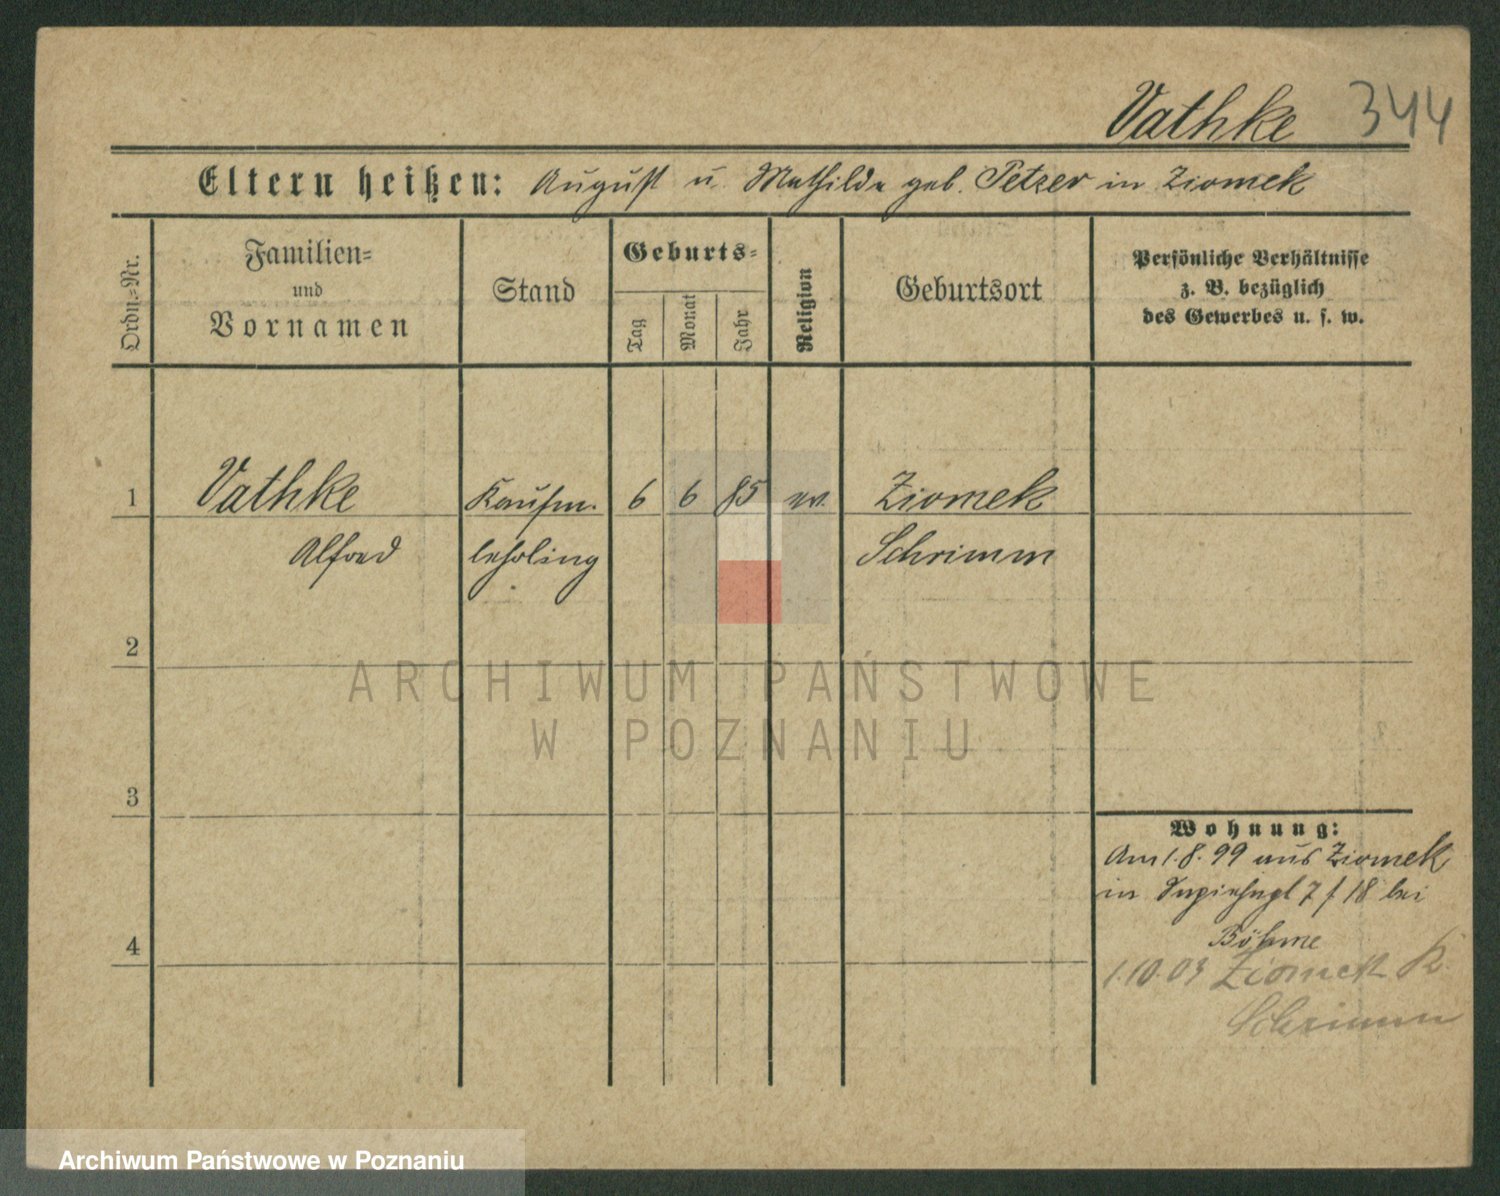 Vathke 344
Eltern heißen: August u. Mathilde geb. Petzer in Ziomek
Ordn.-Nr.
Familien-
und
Vornamen
Stand
Geburts-
Tag
Monat
Jahr
Religion
Geburtsort
Persönliche Verhältnisse
z. B. bezüglich
des Gewerbes u. s. w.
1 Vathke Kaufm. 6 6 85 ev. Ziomek
Alfred lehrling Schrimm
2
ARCHIWUM PAŃSTWOWE
W POZNANIU
3
Wohnung:
Am 1.8.99 aus Ziomek
in 7/18 bei
Böhme
4
1.10.03 Ziomek K.
Schrimm
Archiwum Państwowe w Poznaniu